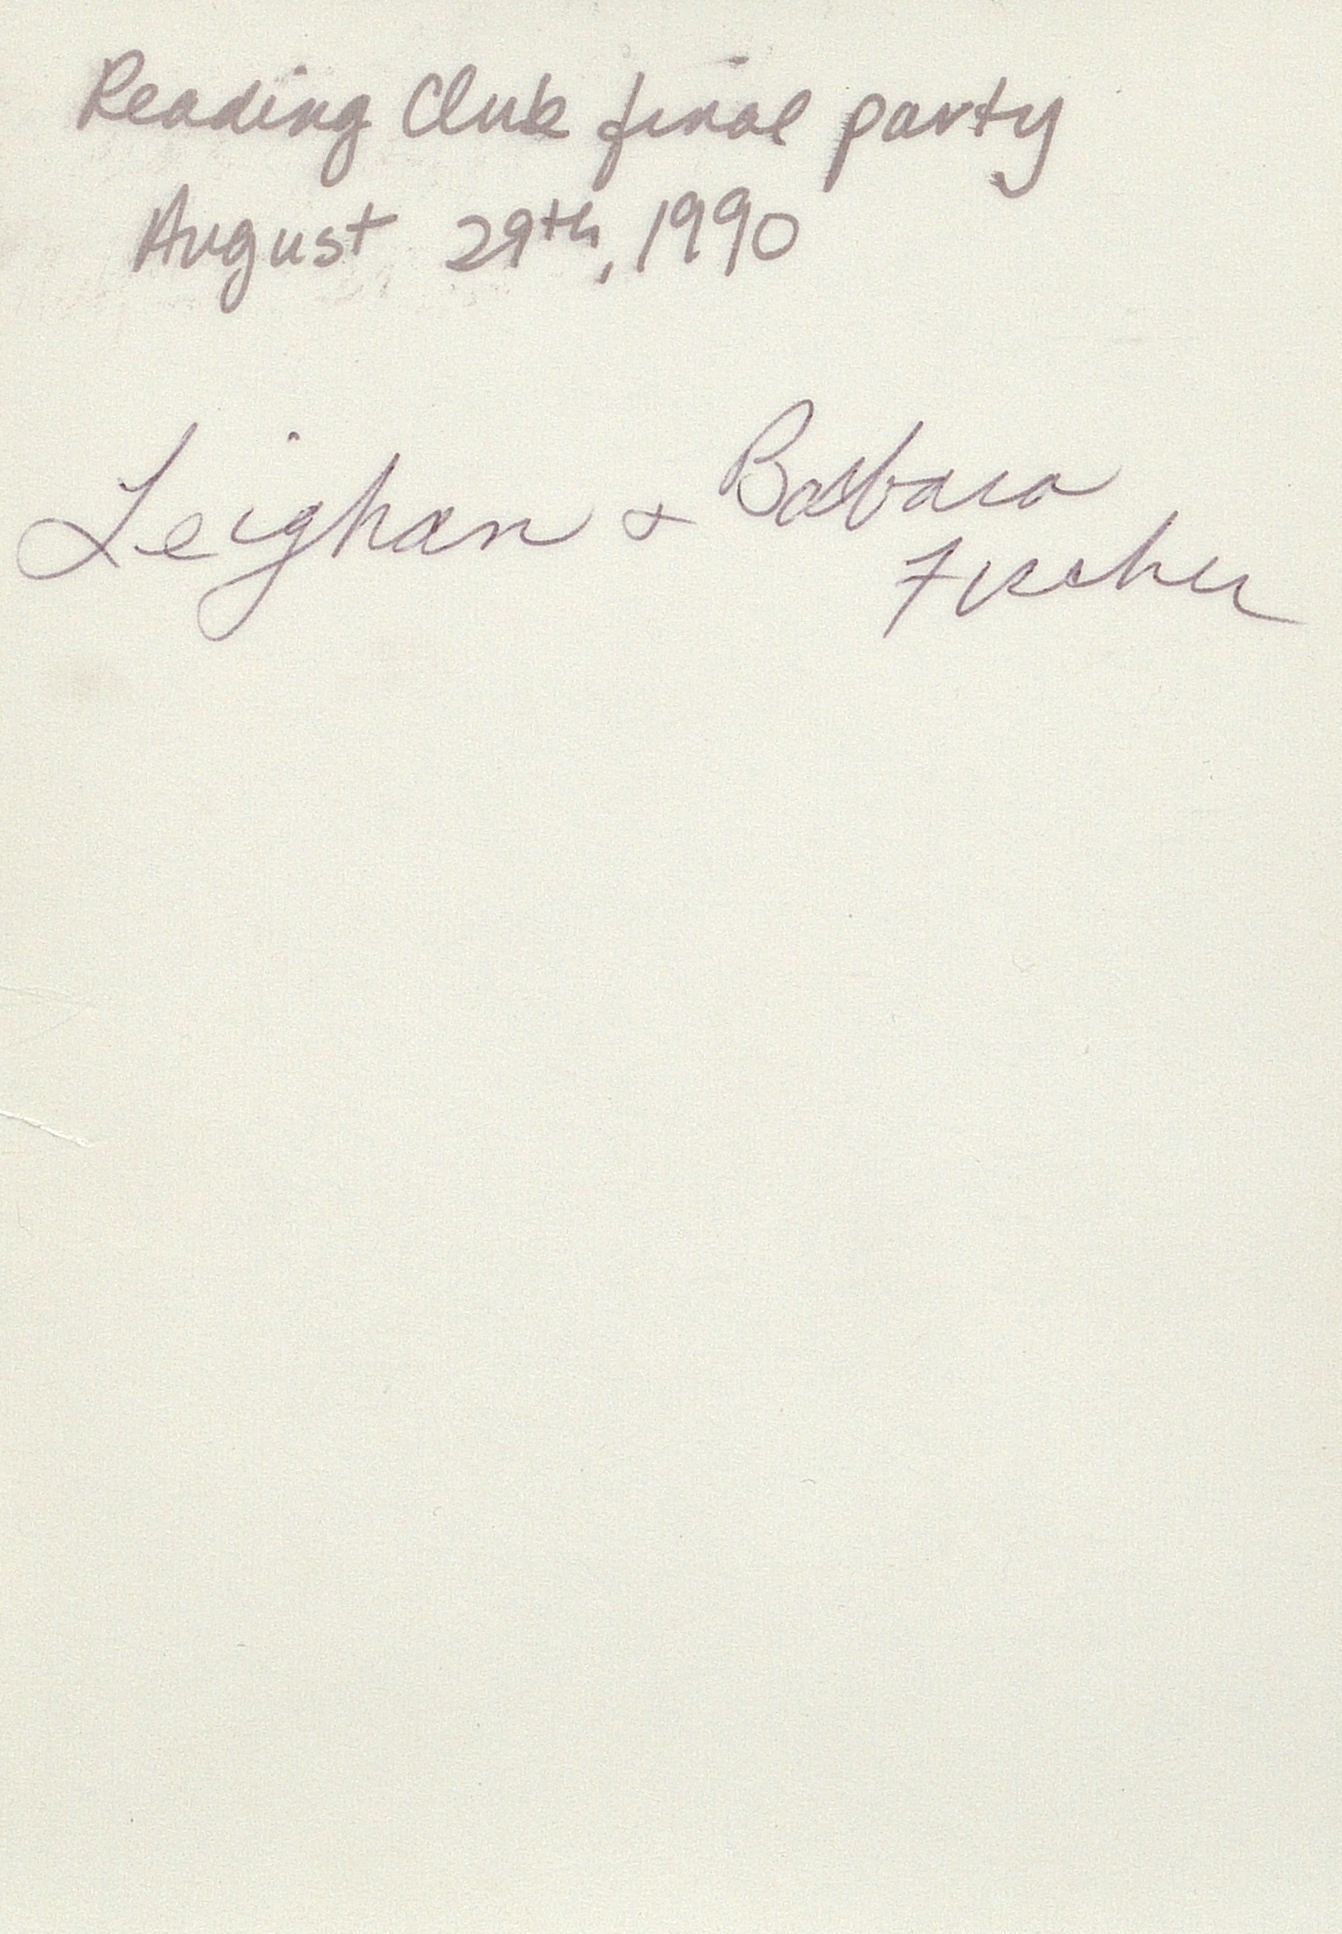 Reading Club final party
August 29th, 1990
Leighan + Barbara
Fischer